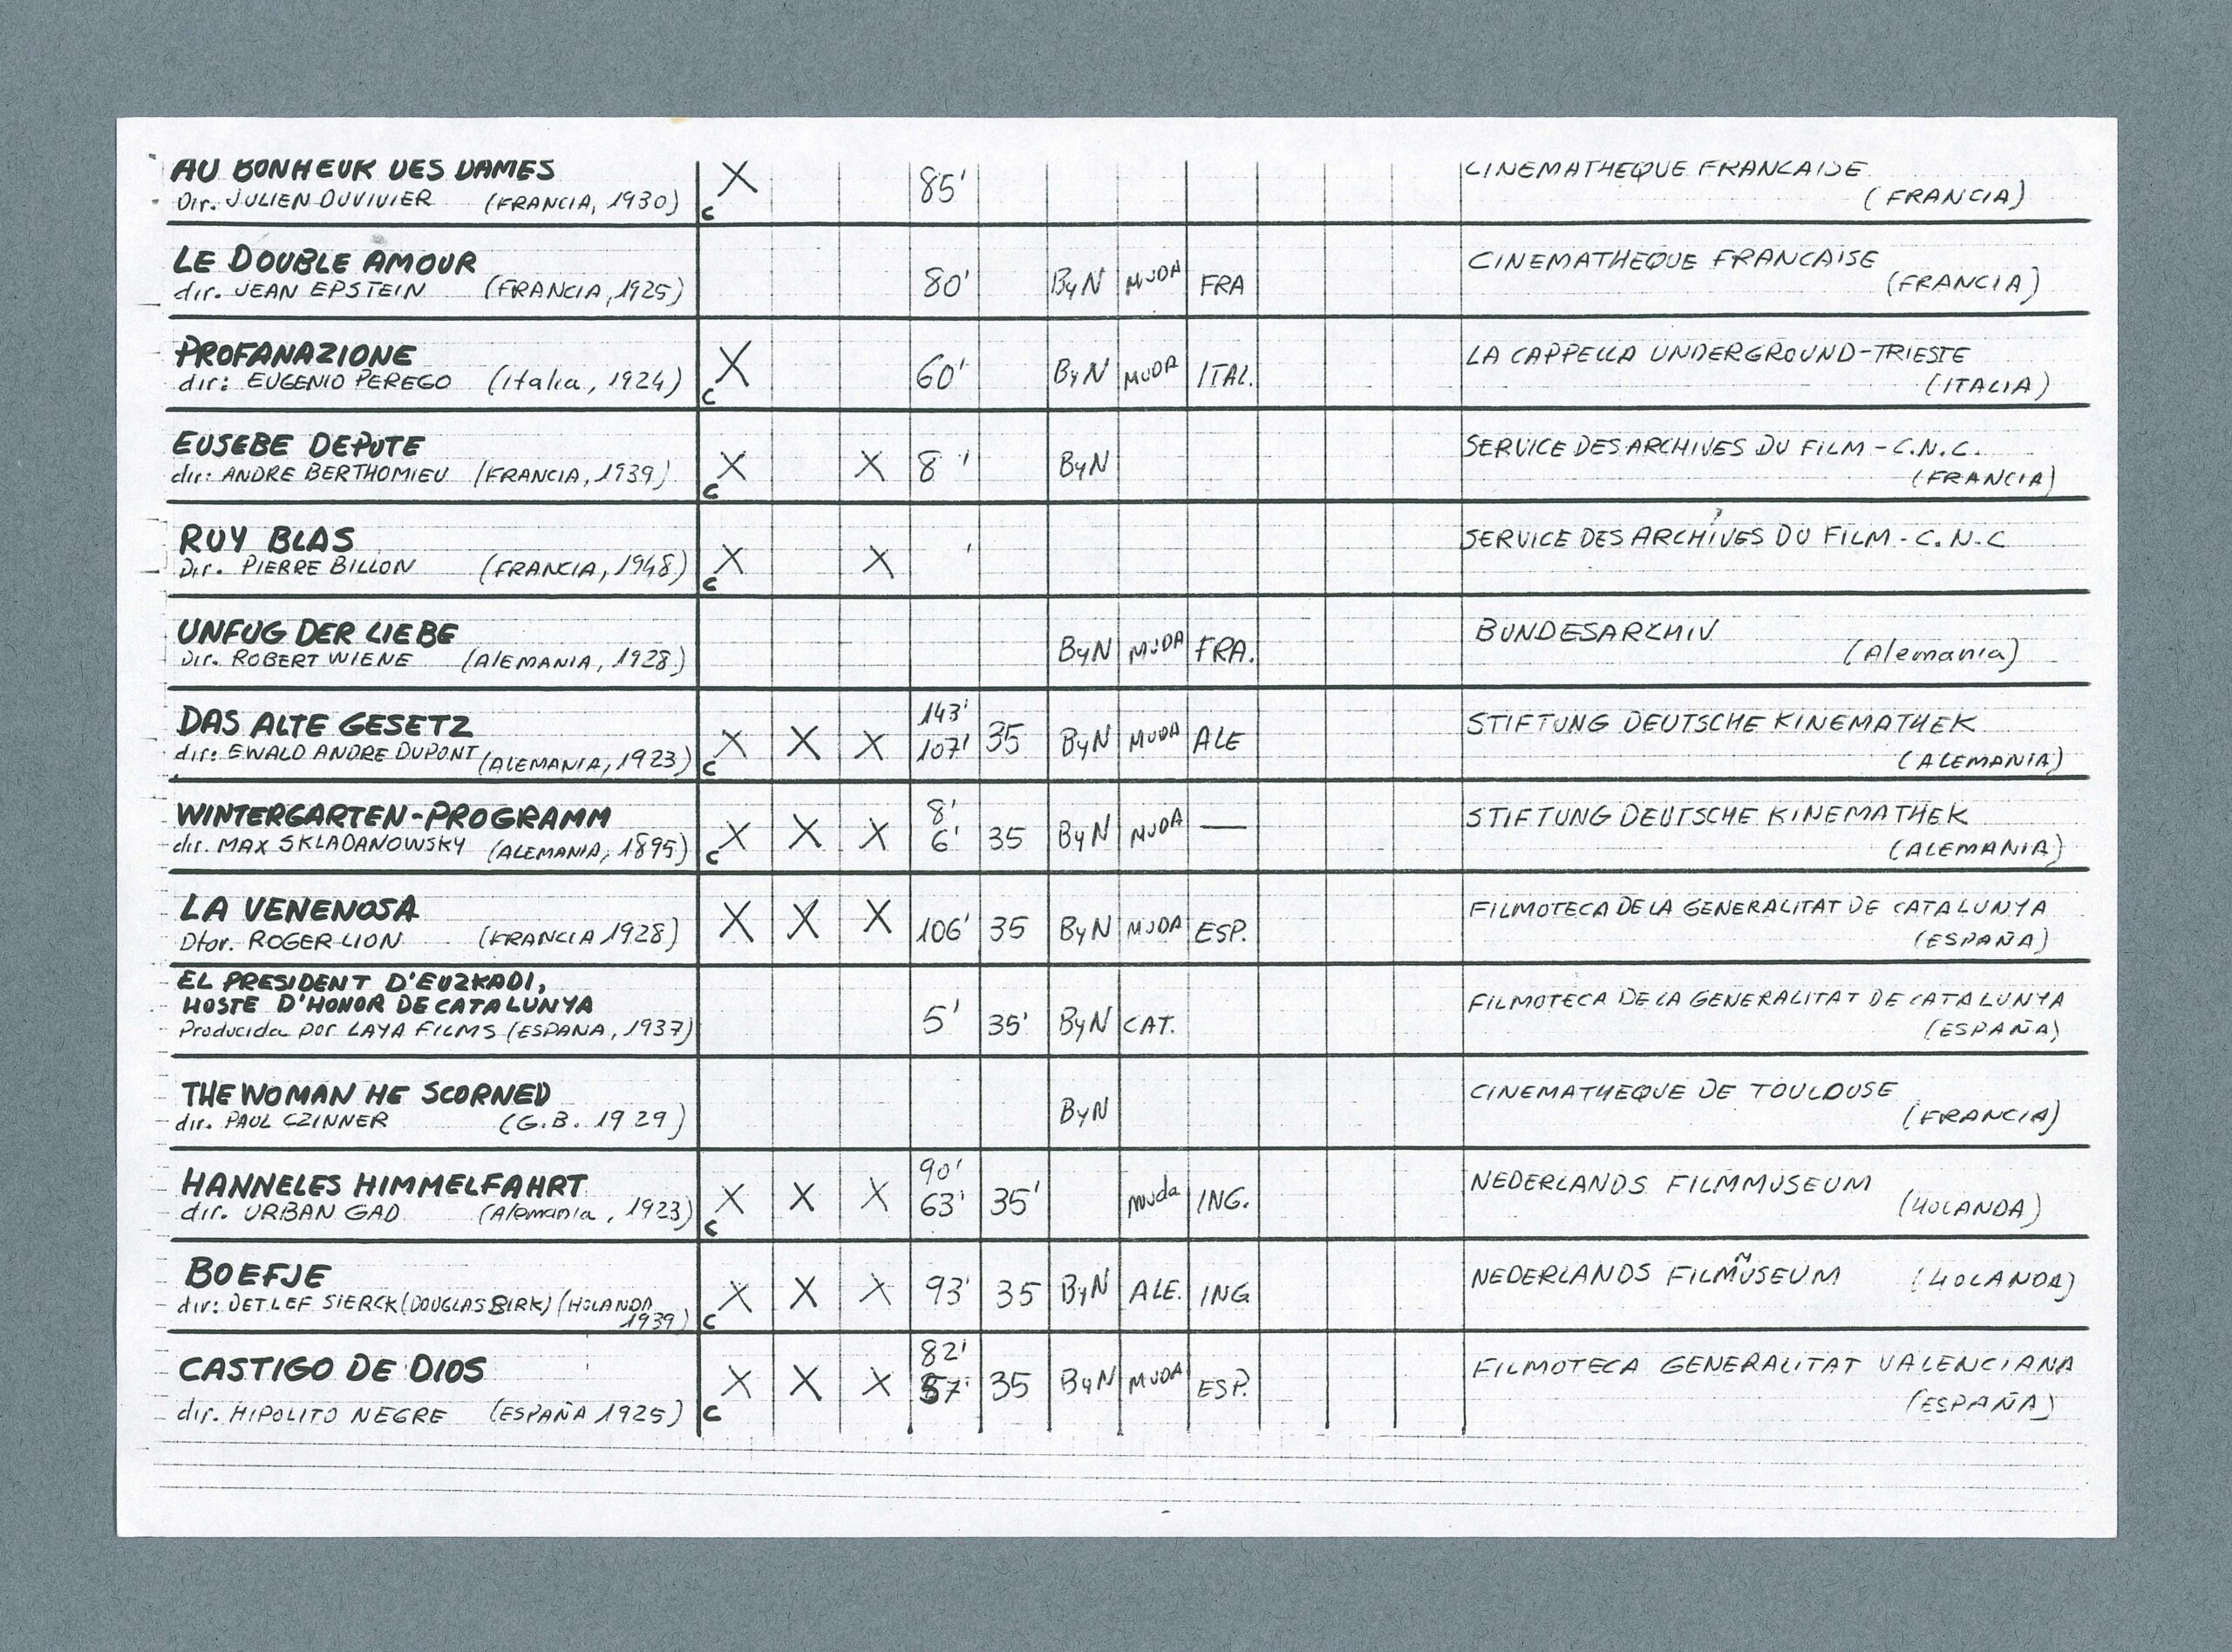 AU BONHEUR DES DAMES X 85' CINEMATHEQUE FRANCAISE
Dir. JULIEN DUVIVIER (FRANCIA, 1930) C (FRANCIA)
LE DOUBLE AMOUR CINEMATHEQUE FRANCAISE
dir. JEAN EPSTEIN (FRANCIA, 1925) 80' ByN MUDA FRA (FRANCIA)
PROFANAZIONE X LA CAPPELLA UNDERGROUND-TRIESTE
dir: EUGENIO PEREGO (Italia, 1924) C 60' ByN MUDA ITAL. (ITALIA)
EUSEBE DEPUTE SERVICE DES ARCHIVES DU FILM - C.N.C.
dir: ANDRE BERTHOMIEU (FRANCIA, 1939) C X X 8 ' ByN (FRANCIA)
RUY BLAS SERVICE DES ARCHIVES DU FILM - C.N.C
Dir. PIERRE BILLON (FRANCIA, 1948) C X X '
UNFUG DER LIEBE BUNDESARCHIV
Dir. ROBERT WIENE (AlEMANIA, 1928) ByN MUDA FRA. (Alemania)
DAS ALTE GESETZ 143' STIFTUNG DEUTSCHE KINEMATHEK
dir: EWALD ANDRE DUPONT (ALEMANIA, 1923) C X X X 107' 35 ByN MUDA ALE (ALEMANIA)
WINTERGARTEN-PROGRAMM 8' STIFTUNG DEUTSCHE KINEMATHEK
dir. MAX SKLADANOWSKY (ALEMANIA, 1895) C X X X 6' 35 ByN MUDA — (ALEMANIA)
LA VENENOSA X X X FILMOTECA DE LA GENERALITAT DE CATALUNYA
Dtor. ROGER LION (FRANCIA 1928) 106' 35 ByN MUDA ESP. (ESPAÑA)
EL PRESIDENT D'EUZKADI,
HOSTE D'HONOR DE CATALUNYA FILMOTECA DE LA GENERALITAT DE CATALUNYA
Producida por LAYA FILMS (ESPAÑA, 1937) 5' 35' ByN CAT. (ESPAÑA)
THE WOMAN HE SCORNED CINEMATHEQUE DE TOULOUSE
dir. PAUL CZINNER (G.B. 1929) ByN (FRANCIA)
HANNELES HIMMELFAHRT 90' NEDERLANDS FILMMUSEUM
dir. URBAN GAD (Alemania, 1923) C X X X 63' 35' muda ING. (HOLANDA)
BOEFJE NEDERLANDS FILMMUSEUM (HOLANDA)
dir: DETLEF SIERCK (DOUGLAS SIRK) (HOLANDA X X X 93' 35 ByN ALE. ING
1939) C
CASTIGO DE DIOS 82' FILMOTECA GENERALITAT VALENCIANA
X X X 57' 35 ByN MUDA ESP.
dir. HIPOLITO NEGRE (ESPAÑA 1925) C (ESPAÑA)